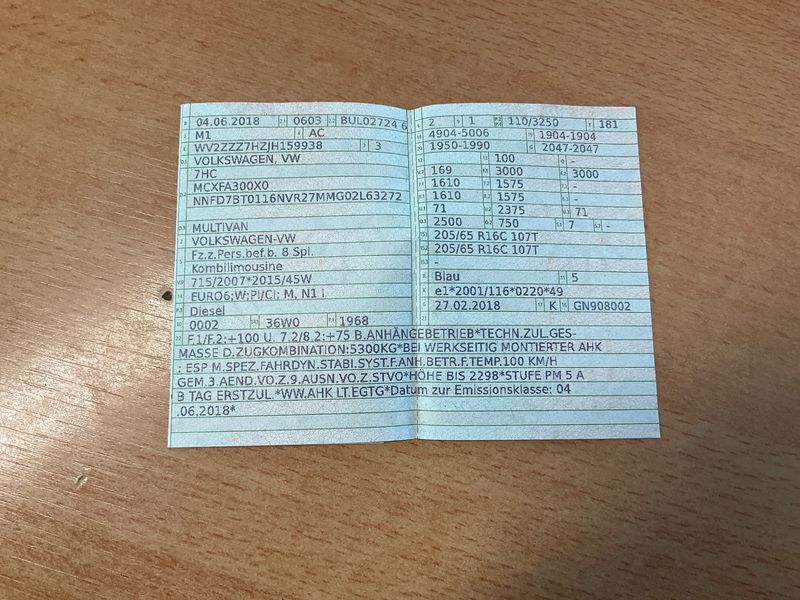 04.06.2018 0603 BUL02724 6
M1 AC
WV2ZZZ7HZJH159938 3
VOLKSWAGEN, VW
7HC
MCXFA300X0
NNFD7BT0116NVR27MMG02L63272
MULTIVAN
VOLKSWAGEN-VW
Fz.z.Pers.bef.b. 8 Spl.
Kombilimousine
715/2007*2015/45W
EURO6;W;PI/CI; M, N1 I
Diesel
0002 36W0 1968
2 1 110/3250 181
4904-5006 1904-1904
1950-1990 2047-2047
- 100 -
169 3000 3000
1610 1575 -
1610 1575 -
71 2375 71
2500 750 7 -
205/65 R16C 107T
205/65 R16C 107T
-
Blau 5
e1*2001/116*0220*49
27.02.2018 K GN908002
F.1/F.2:+100 U. 7.2/8.2:+75 B.ANHÄNGEBETRIEB*TECHN.ZUL.GES-
MASSE D.ZUGKOMBINATION:5300KG*BEI WERKSEITIG MONTIERTER AHK
: ESP M.SPEZ.FAHRDYN.STABI.SYST.F.ANH.BETR.F.TEMP.100 KM/H
GEM.3.AEND.VO.Z.9.AUSN.VO.Z.STVO*HÖHE BIS 2298*STUFE PM 5 A
B TAG ERSTZUL.*WW.AHK LT.EGTG*Datum zur Emissionsklasse: 04
.06.2018*